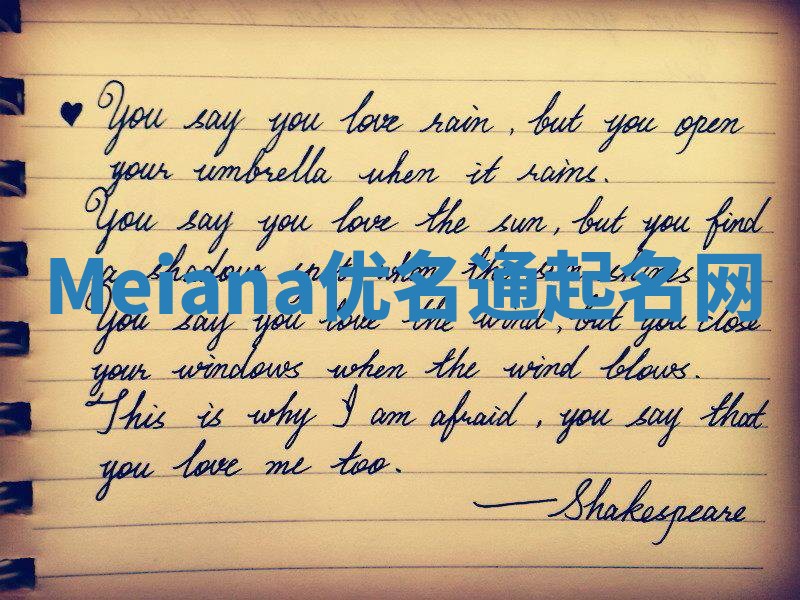 ♥ You say you love rain, but you open
your umbrella when it rains.
You say you love the sun, but you find
a shadow spot when the sun shines
Meiana优名通起名网
You say you love the wind, but you close
your windows when the wind blows.
This is why I am afraid, you say that
you love me too.
— Shakespeare